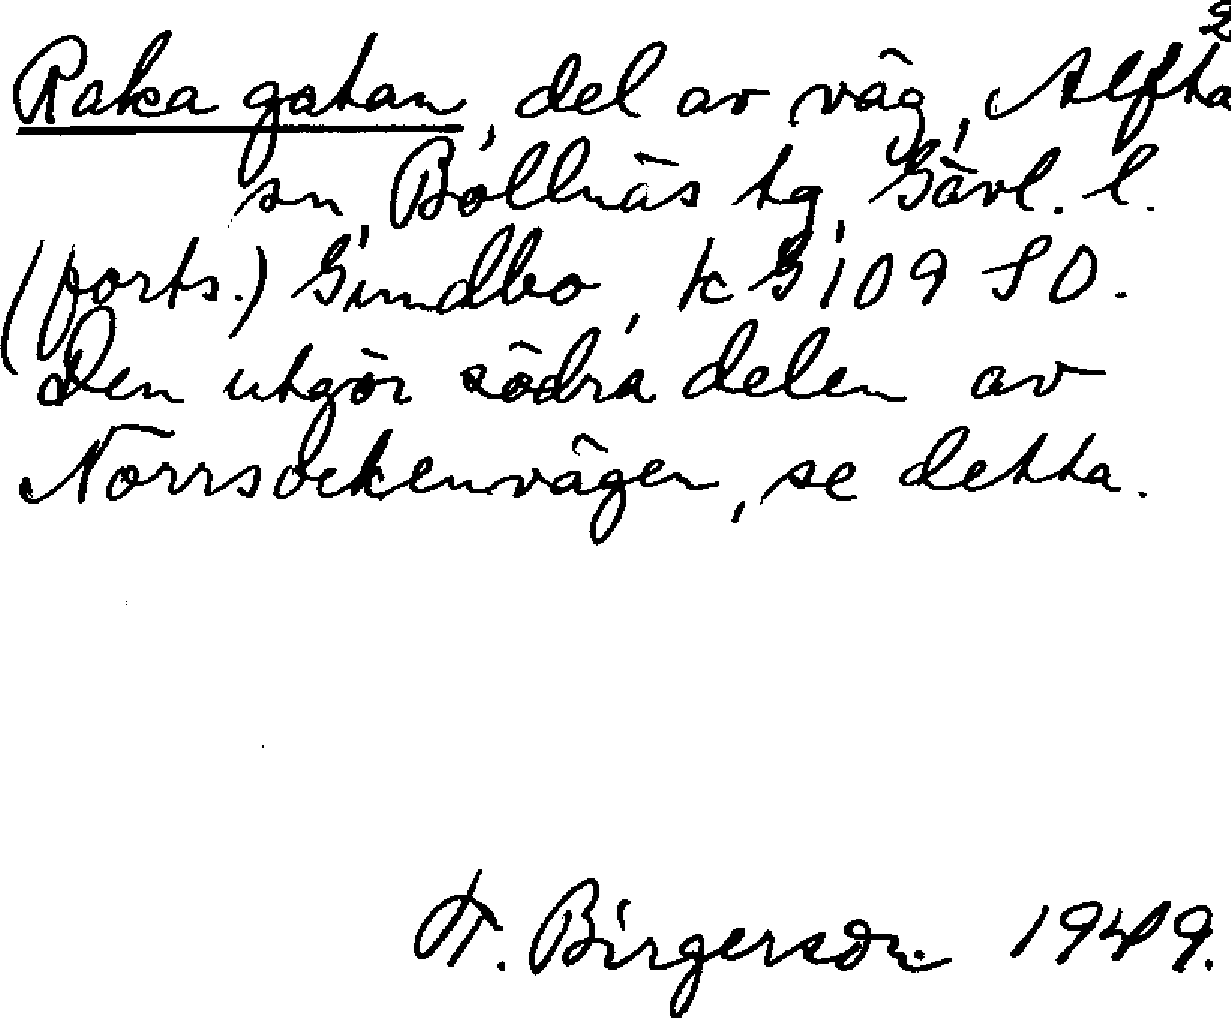 2
Raka gatan, del av väg, Alfta
sn, Bollnäs tg, Gävl. l.
(forts.) Gundbo, k G 109 SO.
Den utgör södra delen av
Norrsockenvägen, se detta.
F. Birgerson. 1949.